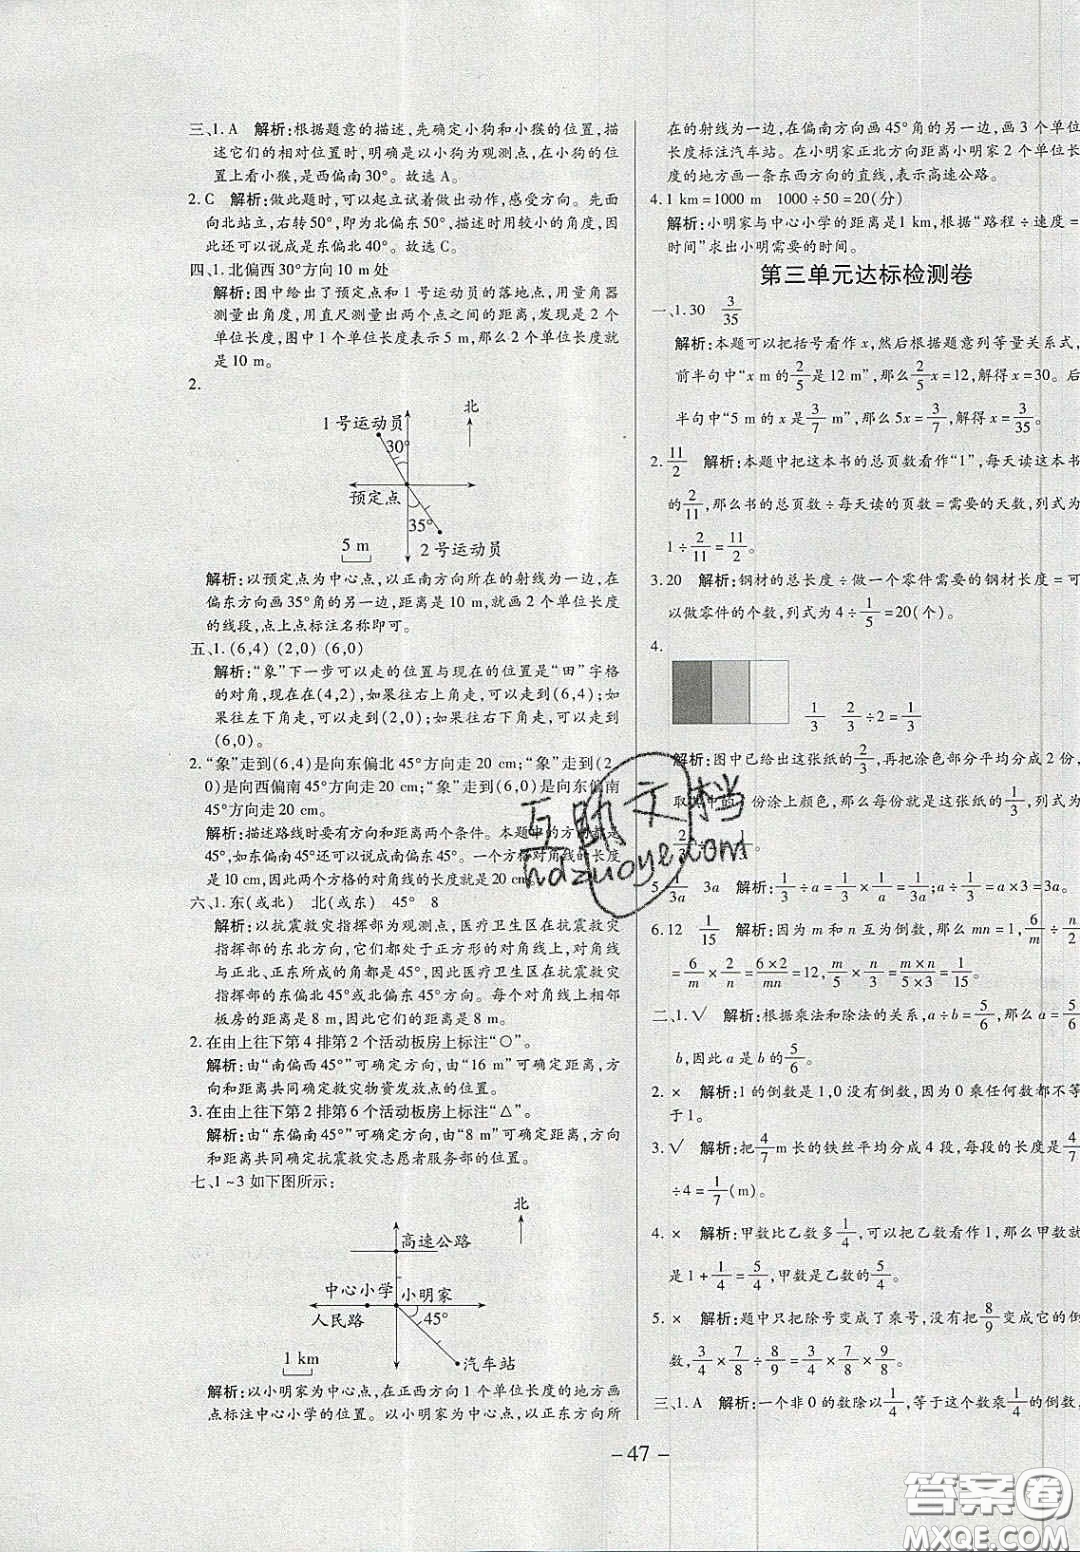 三、1. A 解析:根据题意的描述,先确定小狗和小猴的位置,当
描述它们的相对位置时,明确是以小狗为观测点,在小狗的位
置上看小猴,是西偏南30°。故选A。
2. C 解析:做此题时,可以起立试着做出动作,感受方向。先面
向北站立,右转50°,即为北偏东50°,描述时用较小的角度,因
此还可以说成是东偏北40°。故选C。
四、1. 北偏西30°方向10 m处
解析:图中给出了预定点和1号运动员的落地点,用量角器
测量出角度,用直尺测量出两个点之间的距离,发现是2个
单位长度,图中1个单位长度表示5 m,那么2个单位长度就
是10 m。
2.
北
1号运动员
30°
预定点
35°
5 m
2号运动员
解析:以预定点为中心点,以正南方向所在的射线为一边,在
偏东方向画35°角的另一边,距离是10 m,就画2个单位长度
的线段,点上点标注名称即可。
五、1. (6,4) (2,0) (6,0)
解析:“象”下一步可以走的位置与现在的位置是“田”字格
的对角,现在在(4,2),如果往右上角走,可以走到(6,4);如
果往左下角走,可以走到(2,0);如果往右下角走,可以走到
(6,0)。
2. “象”走到(6,4)是向东偏北45°方向走20 cm;“象”走到(2,
0)是向西偏南45°方向走20 cm;“象”走到(6,0)是向东偏南
45°方向走20 cm。
解析:描述路线时要有方向和距离两个条件。本题中的方向都是
45°,如东偏南45°还可以说成南偏东45°。一个方格对角线的长度
是10 cm,因此两个方格的对角线的长度就是20 cm。
六、1. 东(或北) 北(或东) 45° 8
解析:以抗震救灾指挥部为观测点,医疗卫生区在抗震救灾
指挥部的东北方向,它们都处于正方形的对角线上,对角线
与正北、正东所成的角都是45°,因此医疗卫生区在抗震救灾
指挥部的东偏北45°或北偏东45°方向。每个对角线上相邻
板房的距离是8 m,因此它们的距离是8 m。
2. 在由上往下第4排第2个活动板房上标注“○”。
解析:由“南偏西45°”可确定方向,由“16 m”可确定距离,方
向和距离共同确定救灾物资发放点的位置。
3. 在由上往下第2排第6个活动板房上标注“△”。
解析:由“东偏南45°”可确定方向,由“8 m”可确定距离,方向
和距离共同确定抗震救灾志愿者服务部的位置。
七、1~3如下图所示:
北
高速公路
中心小学 小明家
人民路 45°
1 km
汽车站
解析:以小明家为中心点,在正西方向1个单位长度的地方画
点标注中心小学的位置。以小明家为中心点,以正东方向所
在的射线为一边,在偏南方向画45°角的另一边,画3个单位
长度标注汽车站。在小明家正北方向距离小明家2个单位长
度的地方画一条东西方向的直线,表示高速公路。
4. 1 km=1000 m 1000÷50=20(分)
解析:小明家与中心小学的距离是1 km,根据“路程÷速度=
时间”求出小明需要的时间。
第三单元达标检测卷
一、1. 30 3/35
解析:本题可以把括号看作x,然后根据题意列等量关系式,
前半句中“x m的2/5是12 m”,那么2/5x=12,解得x=30。后
半句中“5 m的x是3/7 m”,那么5x=3/7,解得x=3/35。
2. 11/2 解析:本题中把这本书的总页数看作“1”,每天读这本书
的2/11,那么书的总页数÷每天读的页数=需要的天数,列式为
1÷2/11=11/2。
3. 20 解析:钢材的总长度÷做一个零件需要的钢材长度=可
以做零件的个数,列式为4÷1/5=20(个)。
4.
1/3 2/3÷2=1/3
解析:图中已给出这张纸的2/3,再把涂色部分平均分成2份,
取其中的1份涂上颜色,那么就是这张纸的1/3,列式为
2/3÷2=1/3。
5. 1/3a 3a 解析:1/3÷a=1/3×1/a=1/3a;a÷1/3=a×3=3a。
6. 12 1/15 解析:因为m和n互为倒数,那么mn=1,6/m÷
=6/m×2/n=6×2/mn=12,m/5×n/3=m×n/5×3=1/15。
二、1. √ 解析:根据乘法和除法的关系,a÷b=5/6,那么a=5/6
b,因此a是b的5/6。
2. × 解析:1的倒数是1,0没有倒数,因为0乘任何数都不等
于1。
3. √ 解析:把4/7m长的铁丝平均分成4段,每段的长度是4/7
÷4=1/7(m)。
4. × 解析:甲数比乙数多1/4,可以把乙数看作1,那么甲数就
是1+1/4=5/4,甲数是乙数的5/4。
5. × 解析:题中只把除号变成了乘号,没有把8/9变成它的倒
数,3/4×7/8÷8/9=3/4×7/8×9/8。
三、1. A 解析:一个非0的数除以4,等于这个数乘1/4,1/4的倒数,
－47－
互助文档
hdzuoye.com
答案圈
MXQE.COM